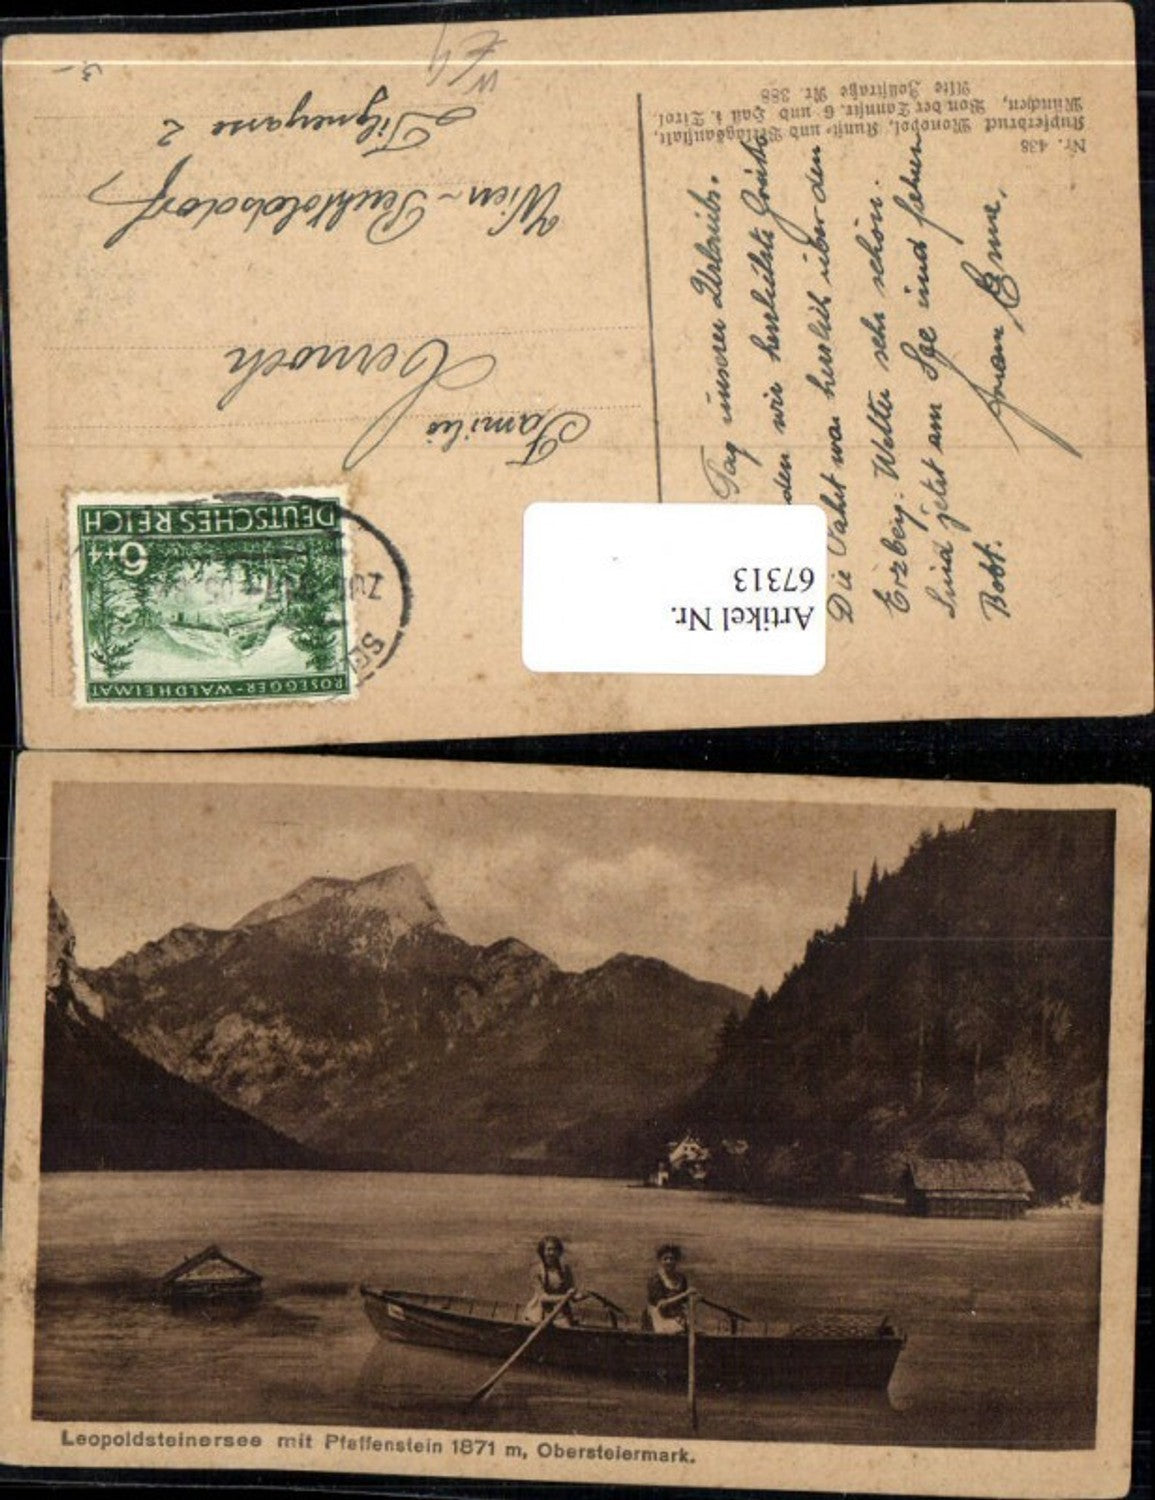 Nr. 438
Kupferdruck Monopol, Kunst- und Verlagsanstalt,
München, Von der Tannstr. 6 und Hall i. Tirol
Alte Zollstraße Nr. 388
Tag unseren Urlaubs.
den wir herzlichste Grüße
Die Fahrt war herrlich über den
Erzberg. Wetter sehr schön.
Sind jetzt am See und fahren
Boot.
Familie
Wien-Perchtoldsdorf,
Tilgnergasse 2
3.-
DEUTSCHES REICH
6+4
ROSEGGER-WALDHEIMAT
Artikel Nr.
67313
Leopoldsteinersee mit Pfaffenstein 1871 m, Obersteiermark.